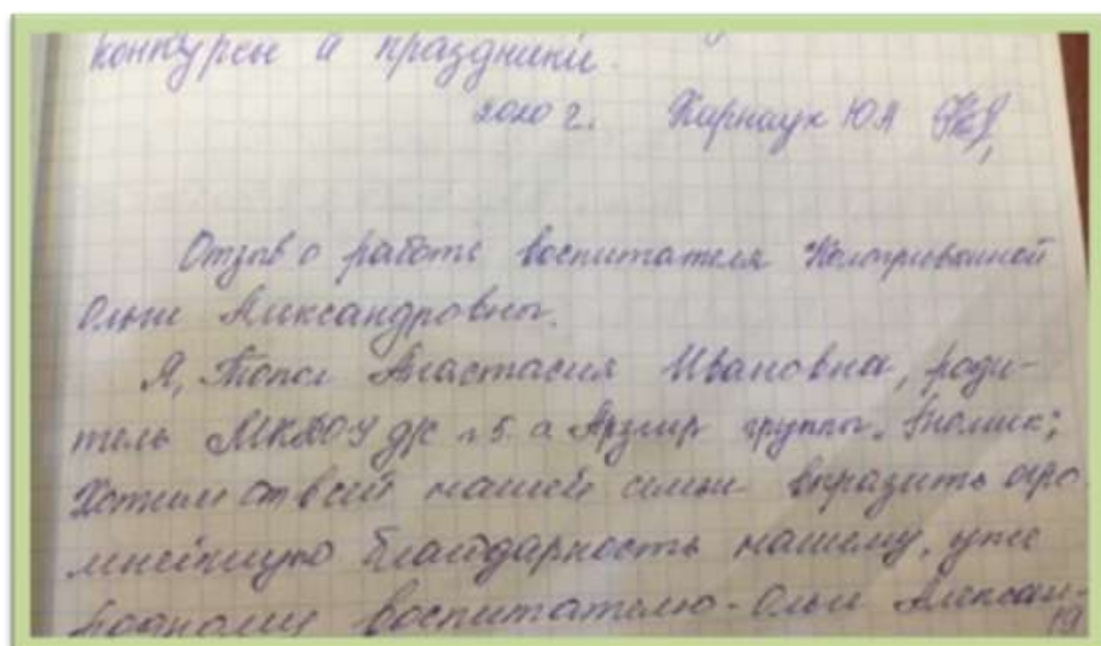 конкурсы и праздники.
2020 г. Карнаух Ю А
Отзыв о работе воспитателя
Ольги Александровны.
Я, Анастасия Ивановна, роди-
тель МКДОУ д/с №5 с Арзгир группы „Гномик"
Хотим от всей нашей семьи выразить огро
мнейшую благодарность нашему, уже
родному воспитателю - Ольге Алексан-
19